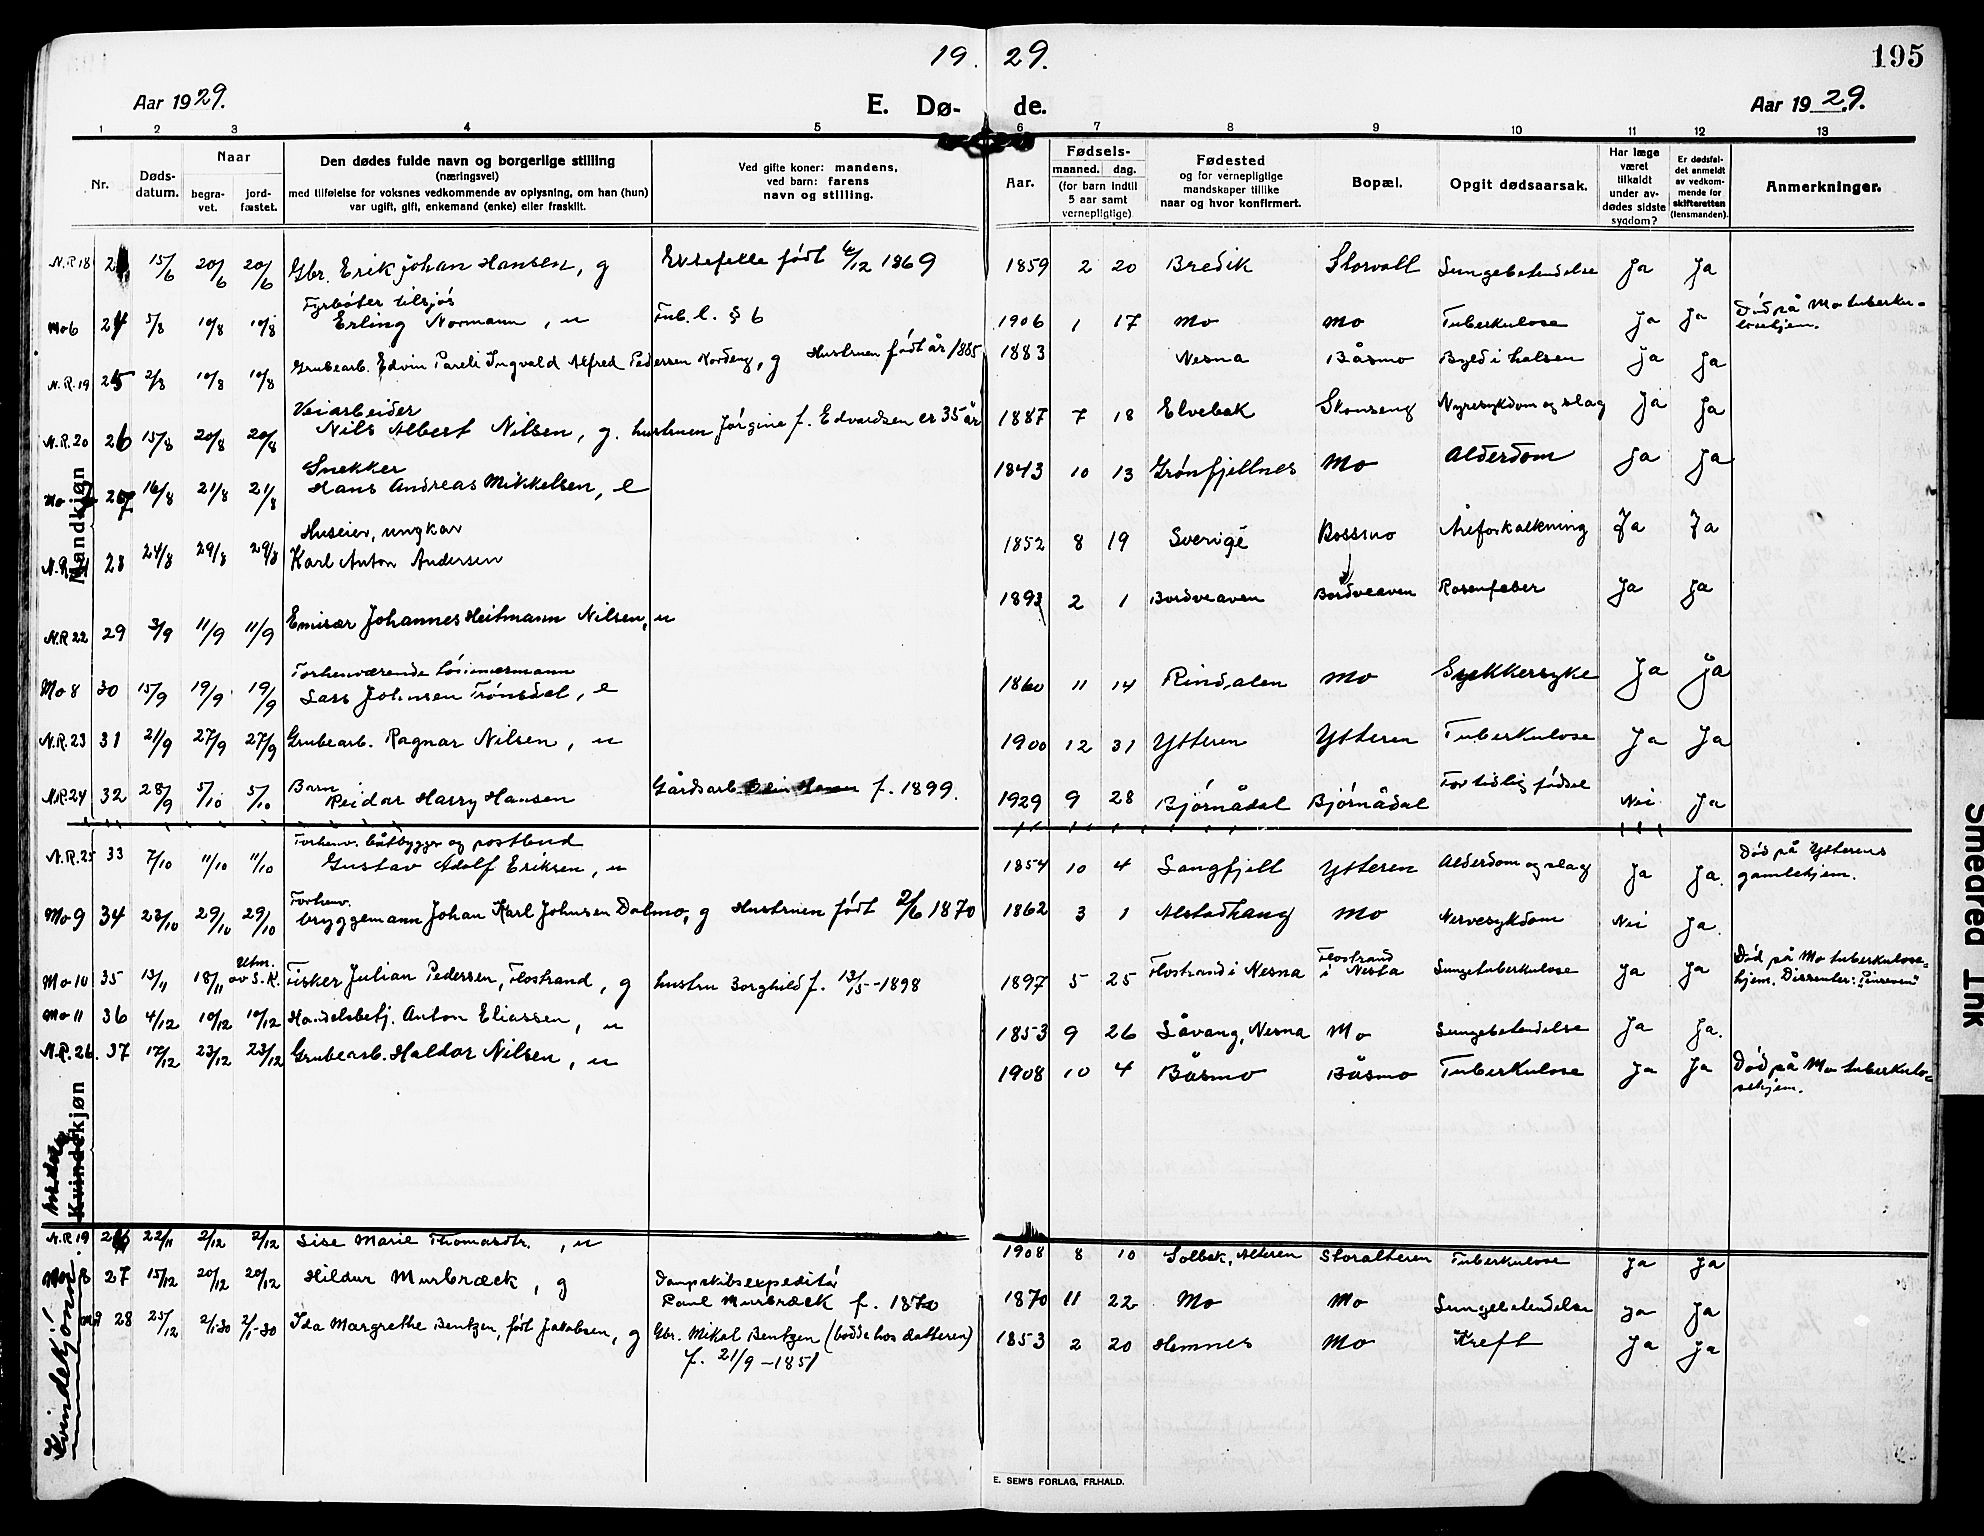 19 29.
195
Aar 1929.
E. Dø- de.
Aar 1929.
1 2 3 4 5 6 7 8 9 10 11 12 13
Nr.
Døds-
datum.
Naar
begra-
vet.
jord-
fæstet.
Den dødes fulde navn og borgerlige stilling
(næringsvei)
med tilføielse for voksnes vedkommende av oplysning, om han (hun)
var ugift, gift, enkemand (enke) eller fraskilt.
Ved gifte koner: mandens,
ved barn: farens
navn og stilling.
Aar.
Fødsels-
maaned. dag.
(for barn indtil
5 aar samt
vernepligtige)
Fødested
og for vernepligtige
mandskaper tillike
naar og hvor konfirmert.
Bopæl.
Opgit dødsaarsak.
Har læge
været
tilkaldt
under av-
dødes sidste
sygdom?
Er dødsfal-
det anmeldt
av vedkom-
mende for
skifteretten
(lensmanden).
Anmerkninger.
Mandkjøn
N.R 18 15/6 20/6 20/6 Gbr. Erik Johan Hansen, g født 6/12 1869 1859 2 20 Bredik Storvoll Lungebetendelse Ja Ja
Fyrbøter tilsjøs
Mo 6 24 5/8 10/8 10/8 Erling Normann, u Tub. l. § 6 1906 1 17 Mo Mo Tuberkulose Ja Ja Død på Mo tuberku-
losehjem.
N.R. 19 25 2/8 10/8 10/8 Grubearb. Edvin Pareli Ingvald Alfred Pedersen Nordeng, g Hustruen født år 1885 1883 Nesna Båsmo Byld i halsen Ja Ja
Veiarbeider
N.R. 20 26 15/8 20/8 20/8 Nils Albert Nilsen, g. hustruen Jørgine f. Edvardsen er 35 år 1887 7 18 Elvebak Skonseng Nyresykdom og slag Ja Ja
Snekker
Mo 7 27 16/8 21/8 21/8 Hans Andreas Mikkelsen, e 1843 10 13 Grønfjellnes Mo Alderdom Ja Ja
Huseier, ungkar
N.R. 21 28 24/8 29/8 29/8 Karl Anton Andersen 1852 8 19 Sverige Bossmo Åreforkalkning Ja Ja
N.R 22 29 3/9 11/9 11/9 Emisær Johannes Heitmann Nilsen, u 1893 2 1 Bordveaven Bordveaven Rosenfeber Ja Ja
Forhenværende
Mo 8 30 15/9 19/9 19/9 Lars Johnsen Trønsdal, e 1860 11 14 Rindalen Mo Sukkersyke Ja Ja
N.R. 23 31 21/9 27/9 27/9 Grubearb. Ragnar Nilsen, u 1900 12 31 Ytteren Ytteren Tuberkulose Ja Ja
Barn
N.R 24 32 28/9 5/10 5/10 Reidar Harry Hansen Gårdsarb. f. 1899. 1929 9 28 Bjørnådal Bjørnådal For tidlig fødsel Nei Ja
Forhenv. båtbygger og postbud
N.R. 25 33 7/10 11/10 11/10 Gustav Adolf Eriksen, u 1854 10 4 Langfjell Ytteren Alderdom og slag Ja Ja. Død på Ytterens
gamlehjem.
Forhenv.
Mo 9 34 23/10 29/10 29/10 bryggemann Johan Karl Johnsen Dalmo, g Hustruen født 2/6 1870 1862 3 1 Alstadhaug Mo Nervesykdom Nei Ja.
Mo 10 35 13/11 18/11 Utm. av S.K. Fisker Julian Pedersen, Flostrand, g hustru Borghild f. 13/5-1898 1897 5 25 Flostrand i Nesna Flostrand i Nesna Lungetuberkulose Ja Ja Død på Mo tuberkulose-
hjem. Dissenter: Pinseven
Mo 11 36 4/12 10/12 10/12 Handelsbetj. Anton Eliassen, u 1853 9 26 Låvang, Nesna Mo Lungebetendelse Ja Ja.
N.R. 26 37 17/12 23/12 23/12 Grubearb. Haldor Nilsen, u 1908 10 4 Båsmo Båsmo Tuberkulose Ja Ja Død på Mo tuberkulo-
sehjem.
Kvindekjøn
Kvindekjønn
N.R 19 26 22/11 2/12 2/12 Lise Marie Thomasdtr., u 1908 8 10 Solbak, Alteren Storalteren Tuberkulose Ja Ja
Mo 8 27 15/12 20/12 20/12 Hildur Murbræck, g Dampskibsexpeditør
Paul Murbræck f. 1870 1870 11 22 Mo Mo Lungebetendelse Ja Ja
28 25/12 2/1-30 2/1-30 Ida Margrethe Bentzen, født Jakobsen, g Gbr. Mikal Bentzen (bodde hos datteren)
f. 21/9-1851 1853 2 20 Hemnes Mo Kreft Ja Ja
E. SEM'S FORLAG, FR.HALD.
Smedred TNK